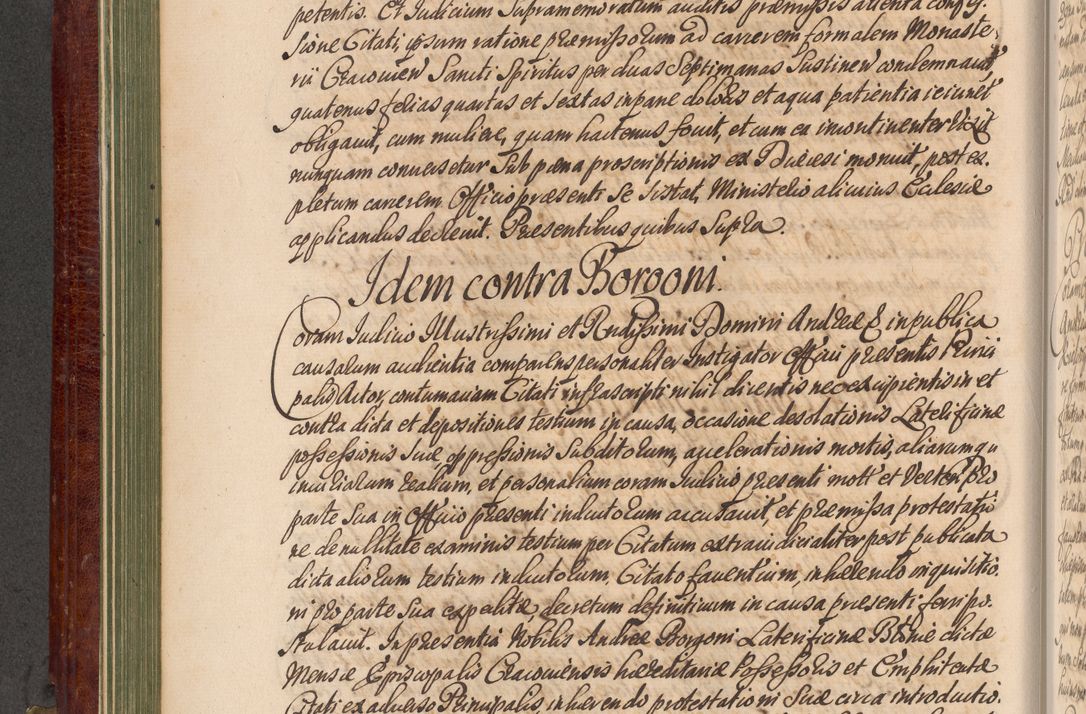 petentis. Et Iudicium Supramemoratum auditis præmissis attenta confes-
sione Citati, ipsum ratione præmissorum ad carcerem formalem Monaste-
rii Cracovien Sancti Spiritus per duas Septimanas Sustinen condemnavit
quatenus ferias quartas et sextas in pane doloris et aqua patientia ieiunet
obligavit, cum muliere, quam hactenus fovit, et cum ea incontinenter vixit
nunquam conversetur Sub pæna proscriptionis ex Diæcesi monuit, post ex-
pletum carcerem Officio præsenti Se Sistat, Ministerio alicuius Ecclesiæ
applicandus declevit. Præsentibus quibus Supra.
Idem contra Borgoni.
Coram Iudicio Illustrissimi et Rndissimi Domini Andreæ & in publica
causarum audientia comparens personaliter Instigator Officii præsentis Princi
palis Actor, contumaciam Citati infrascripti nihil dicentis nec excipientis in et
contra dicta et depositiones testium in causa, occasione desolationis Laterificinæ
possessionis Suæ oppressionis Subditorum, accelerationis mortis, aliarumqu
iniuriarum realium, et personalium coram Iudicio præsenti mott et Verten pro
parte Sua in Officio præsenti inductorum accusavit, et præmissa protestatio
ne de nullitate examinis testium per Citatum extraiudicialiter post publicata
dicta aliorum testium inductorum, Citato faventium, inhærendo inquisitio-
ni pro parte Sua expeditæ decretum definitivum in causa præsenti ferri po-
stulavit. In præsentia Nobilis Andreæ Borgoni Laterificinæ dictæ
Mensæ Episcopalis Cracoviensis hæreditariæ Possessoris et Emphiteutæ
Citati ex adverso Principalis, inhærendo protestationi Suæ circa introductio-